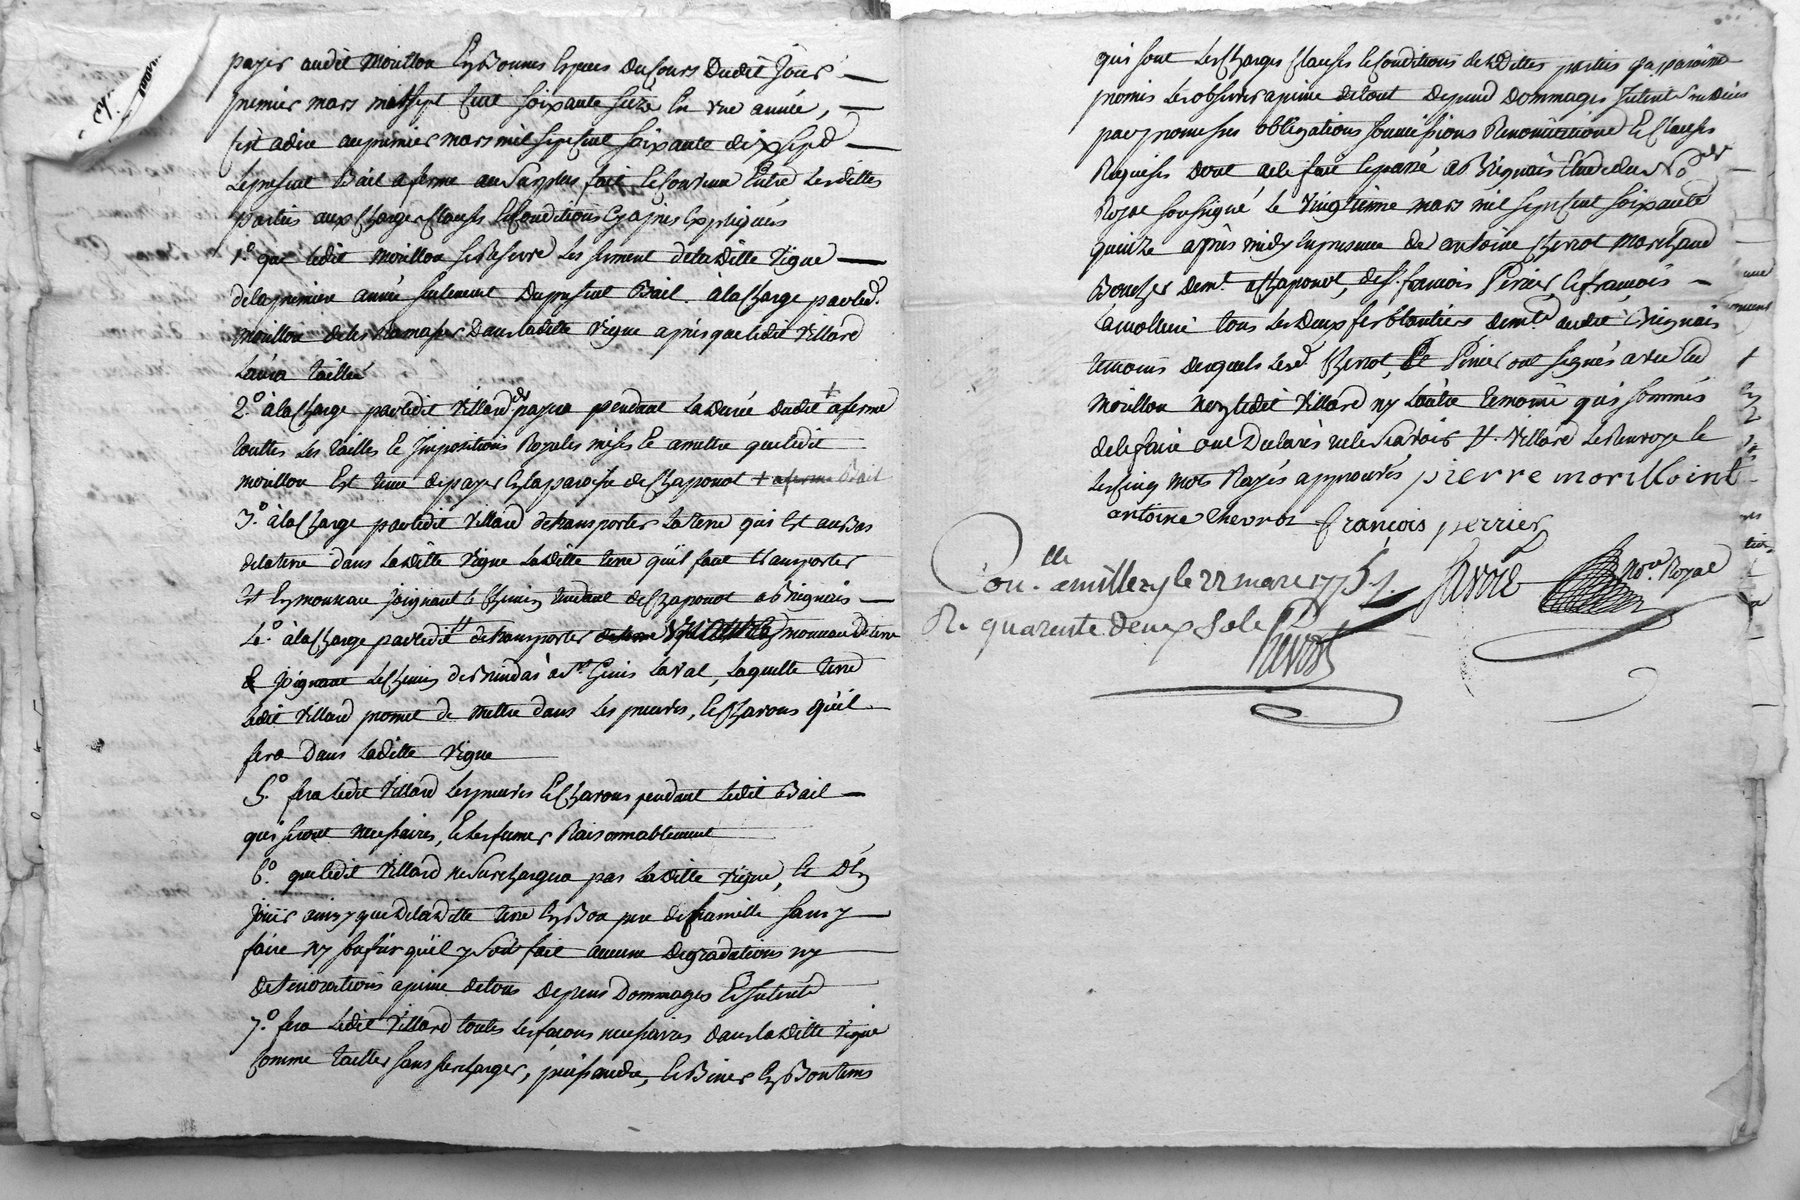 payer audit Morillon En Bonnes Especes du Cours Dudit Jour
premier mars mil sept Cent soixante seize En une année,
C'est adire au premier mars mil sept Cent soixante dix sept
Le present Bail a ferme au surplus fait Et Convenu Entre Lesdittes
parties aux Charges Clauses Et Conditions Cy apres Expliquées
1.° que ledit Morillon se Reserve Les serment de laditte vigne
de la premiere année seulement du present Bail. à la Charge par led.
Morillon de les Ramasser Dans laditte vigne après que ledit Villard
Laura taillée
2.° à la Charge par ledit Villard de payer pendant La durée dudit + a ferme
touttes Les tailles Et Impositions Royales mises Et a mettre que ledit
Morillon Est tenu de payer En la paroisse de Chaponot + a ferme Bail
3.° à la Charge par ledit Villard de transporter La terre qui Est au Bas
de la terre dans Laditte vigne Laditte terre qu'il faut transporter
Est En monceau joignant le Chemin tendant de Chaponot a Brignais
4.° à la Charge par ledit H de transporter monceau de terre
joignant Le Chemin de Brindas à S.t Genis Laval, Laquelle terre
Ledit Villard promet de mettre dans Les preuves, Et Chavons qu'il
fera Dans Laditte vigne
5.° fera Ledit Villard Les preuves Et Chavons pendant Ledit Bail
qui seront necessaires, Et Les fumer Raisonnablement
6.° que ledit Villard ne surchargera pas Laditte vigne, Et D'En
Joüir ainsy que de laditte terre En Bon pere de famille sans y
faire ny soufrir qu'il y soit fait aucune degradations ny
deteriorations a peine de tous depens Dommages Et Interets
7.° fera Ledit Villard toutes Les façons necessaires dans laditte vigne
Comme tailler sans surcharger, Et Biner En Bon tems
qui sont Les Charges Clauses Et Conditions desdittes parties
promis Les observer a peine de tout depend Dommages Interets
par promesses obligations soumissions Renonciations Et Clauses
Requises dont acte fait Et passé a Brignais Etude du No.re
Royal soussigné Le vingtieme mars mil sept Cent soixante
quinze après midy En presence de antoine Chevrot Marchand
Boucher dem.t a Chaponot, de s.r francois Perier, Et francois
tous Les deux ferblantiers dem.t audit Brignais
temoins desquels Lesd. Chevrot, Et Perier ont signés avec led
Morillon non ledit Villard ny Lautre temoin qui sommés
de le faire ont declarés ne le scavoir H. Villard Le Renvoye Et
Les Cinq mots Rayés approuvés pierre morilloint
antoine Chevrot francois perrier
Con.lle a millery le 22 mars 1775
R. quarente deux sols
No.re Royal